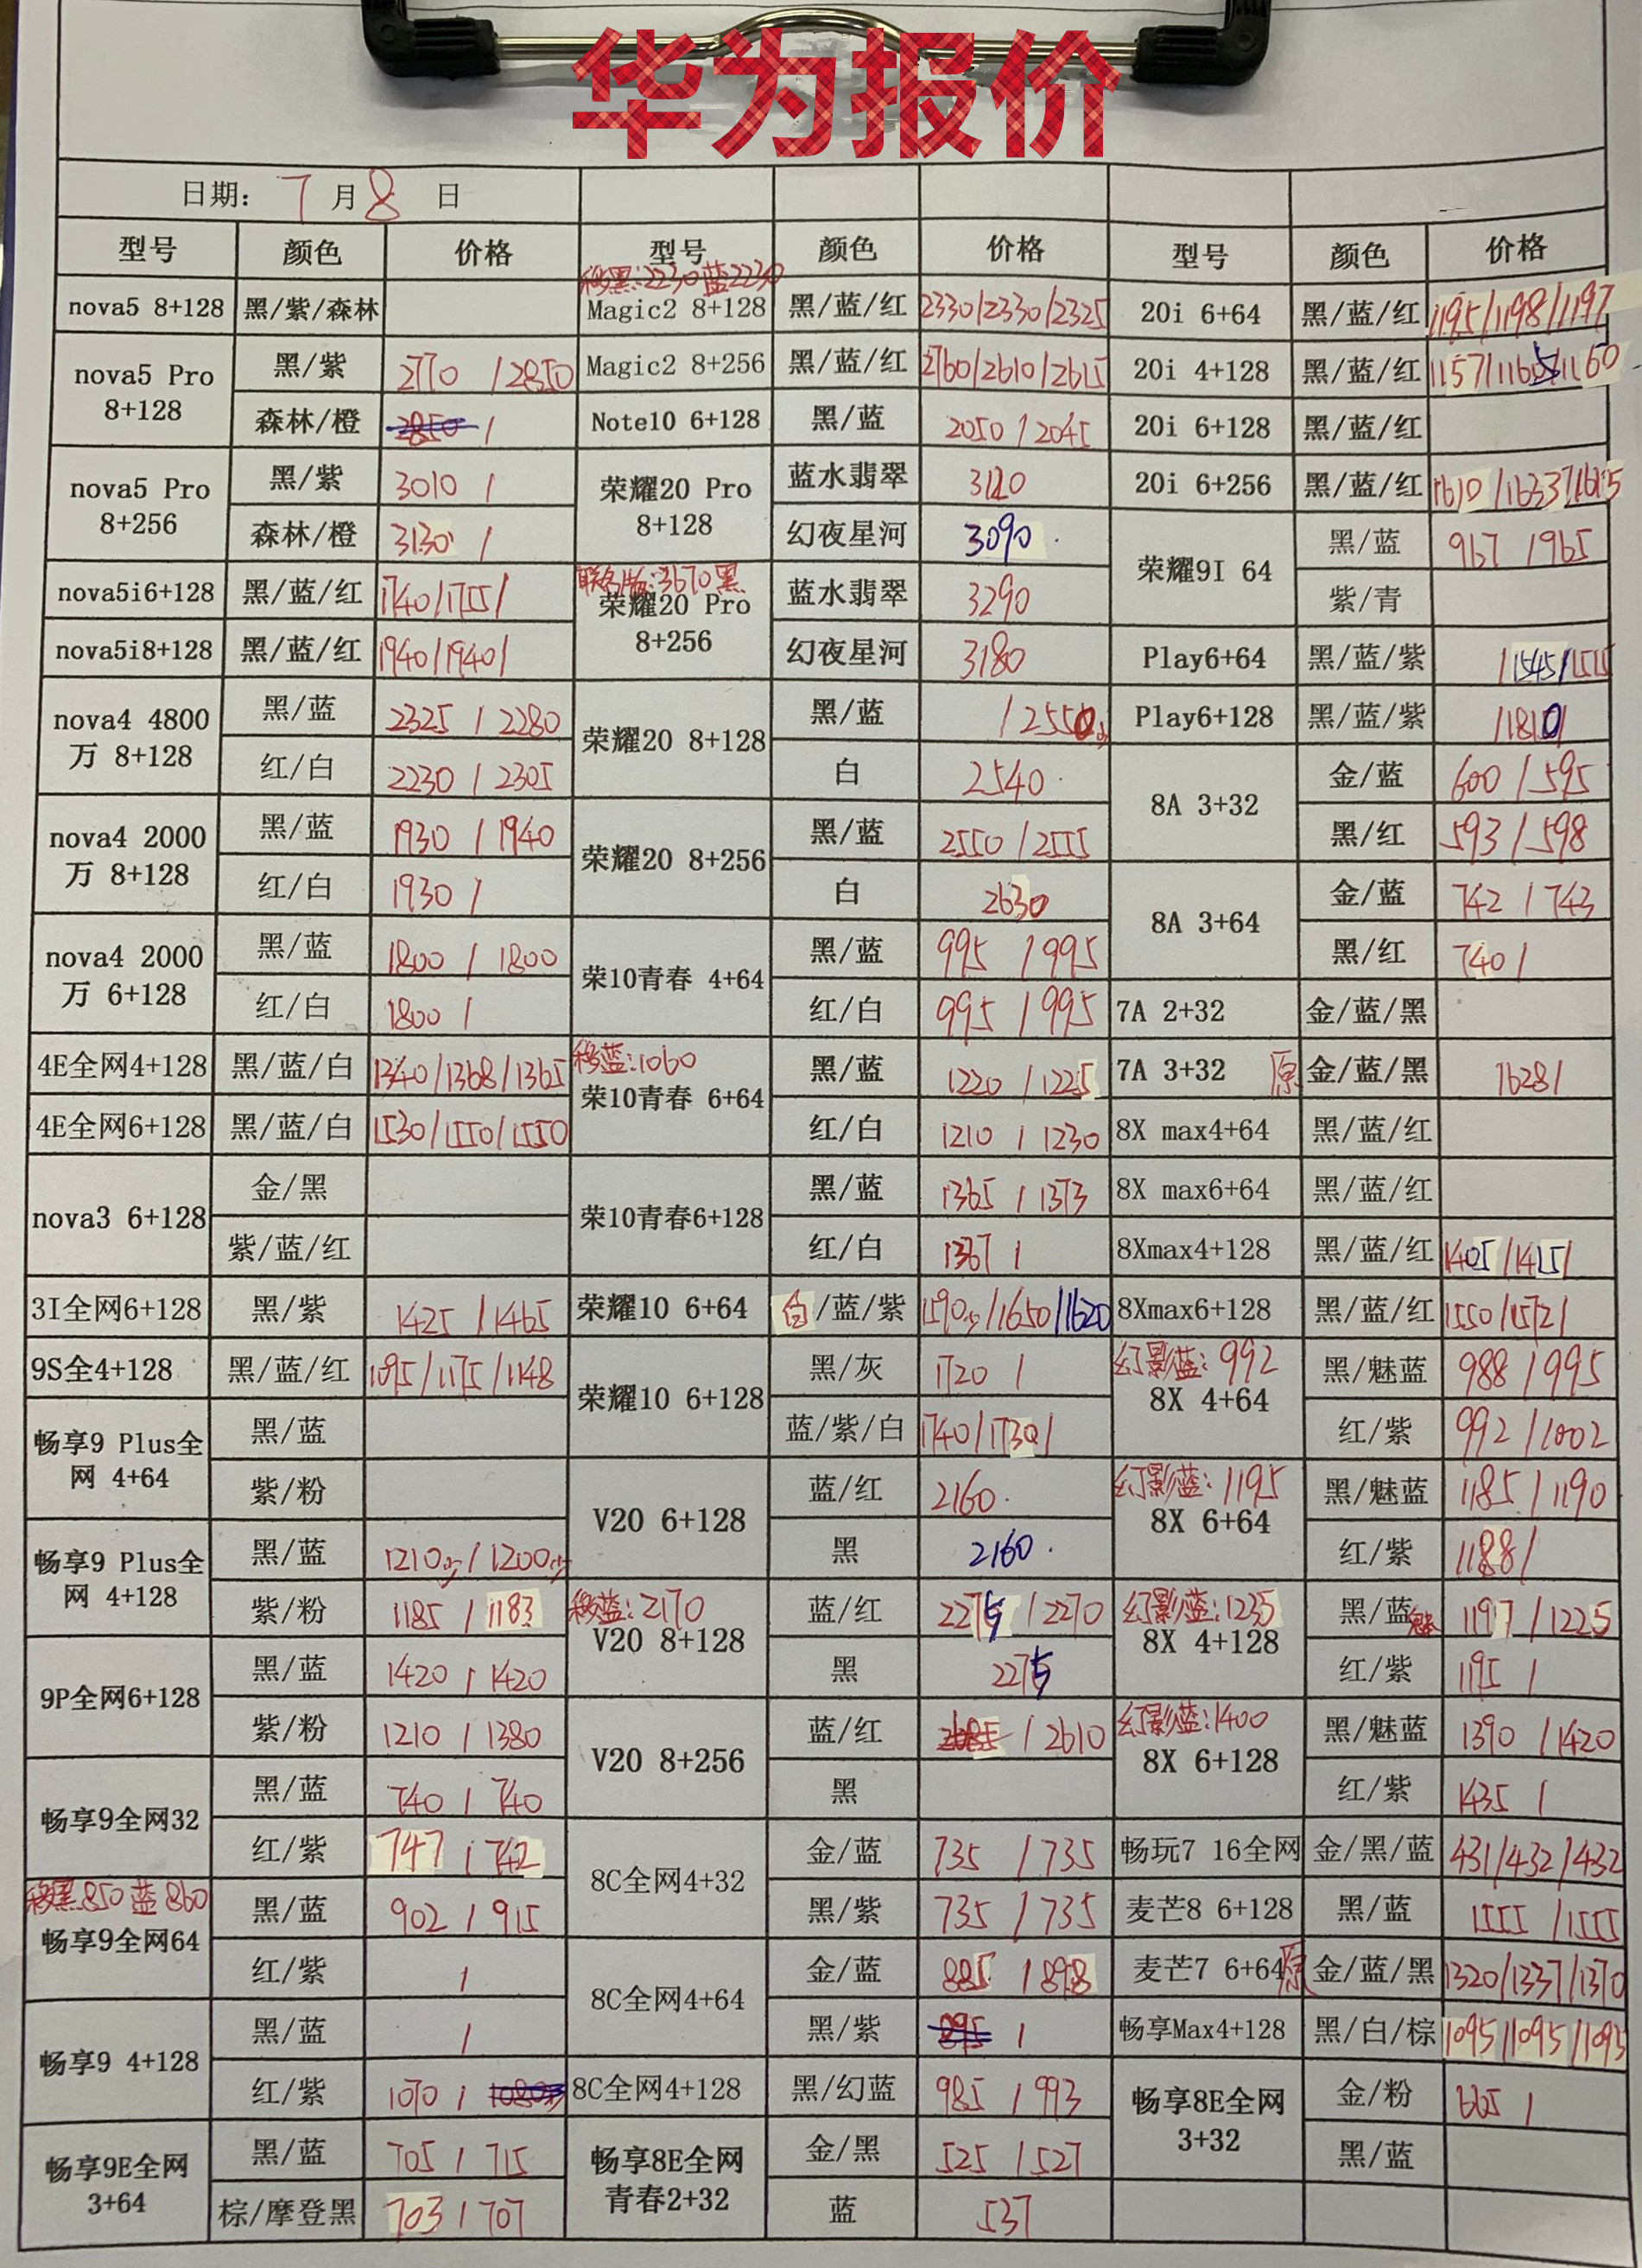 华为报价
日期: 7 月 8 日
型号 颜色 价格 型号 颜色 价格 型号 颜色 价格
nova5 8+128 黑/紫/森林
nova5 Pro 8+128 黑/紫 2770 /2850
森林/橙 /
nova5 Pro 8+256 黑/紫 3010 /
森林/橙 3130 /
nova5i6+128 黑/蓝/红 1740/1755/
nova5i8+128 黑/蓝/红 1940/1940/
nova4 4800万 8+128 黑/蓝 2325 / 2280
红/白 2230 / 2305
nova4 2000万 8+128 黑/蓝 1930 / 1940
红/白 1930 /
nova4 2000万 6+128 黑/蓝 1800 / 1800
红/白 1800 /
4E全网4+128 黑/蓝/白 1340/1368/1365
4E全网6+128 黑/蓝/白 1530/1550/1550
nova3 6+128 金/黑
紫/蓝/红
3I全网6+128 黑/紫 1425 /1465
9S全4+128 黑/蓝/红 1095/1175/1148
畅享9 Plus全网 4+64 黑/蓝
紫/粉
畅享9 Plus全网 4+128 黑/蓝 1210少/1200少
紫/粉 1185 / 1183
9P全网6+128 黑/蓝 1420 / 1420
紫/粉 1210 / 1380
畅享9全网32 黑/蓝 740 / 740
红/紫 747 / 742
移黑850 蓝860
畅享9全网64 黑/蓝 902 / 915
红/紫 /
畅享9 4+128 黑/蓝 /
红/紫 1070 /
畅享9E全网 3+64 黑/蓝 705 / 715
棕/摩登黑 703 / 707
移黑:2230 蓝2230
Magic2 8+128 黑/蓝/红 2330/2330/2325
Magic2 8+256 黑/蓝/红 2760/2610/2615
Note10 6+128 黑/蓝 2050 / 2045
荣耀20 Pro 8+128 蓝水翡翠 3120
幻夜星河 3090
联名版:3670黑
荣耀20 Pro 8+256 蓝水翡翠 3290
幻夜星河 3180
荣耀20 8+128 黑/蓝 / 2550少
白 2540
荣耀20 8+256 黑/蓝 2550 /2555
白 2630
荣10青春 4+64 黑/蓝 995 /995
红/白 995 /995
移蓝:1060
荣10青春 6+64 黑/蓝 1220 /1225
红/白 1210 / 1230
荣10青春6+128 黑/蓝 1365 / 1373
红/白 1367 /
荣耀10 6+64 白/蓝/紫 1590少/1650/1620
荣耀10 6+128 黑/灰 1720 /
蓝/紫/白 1740/1730/
V20 6+128 蓝/红 2160
黑 2160
移蓝:2170
V20 8+128 蓝/红 2275 / 2270
黑 2275
V20 8+256 蓝/红 / 2610
黑
8C全网4+32 金/蓝 735 /735
黑/紫 735 /735
8C全网4+64 金/蓝 885 /898
黑/紫 /
8C全网4+128 黑/幻蓝 985 / 993
畅享8E全网青春2+32 金/黑 525 /527
蓝 537
20i 6+64 黑/蓝/红 1195/1198/1197
20i 4+128 黑/蓝/红 1157/1165/1160
20i 6+128 黑/蓝/红
20i 6+256 黑/蓝/红 1610 /1633/1615
荣耀9I 64 黑/蓝 967 /965
紫/青
Play6+64 黑/蓝/紫 /1545/1515
Play6+128 黑/蓝/紫 /1810/
8A 3+32 金/蓝 600 / 595
黑/红 593 / 598
8A 3+64 金/蓝 742 / 743
黑/红 740 /
7A 2+32 金/蓝/黑
7A 3+32 原 金/蓝/黑 /628/
8X max4+64 黑/蓝/红
8X max6+64 黑/蓝/红
8Xmax4+128 黑/蓝/红 1405 /1415/
8Xmax6+128 黑/蓝/红 1550/1572/
幻影蓝: 992
8X 4+64 黑/魅蓝 988 /995
红/紫 992 /1002
幻影蓝: 1195
8X 6+64 黑/魅蓝 1185 / 1190
红/紫 1188 /
幻影蓝:1235
8X 4+128 黑/蓝魅 1197 / 1225
红/紫 1195 /
幻影蓝:1400
8X 6+128 黑/魅蓝 1390 /1420
红/紫 1435 /
畅玩7 16全网 金/黑/蓝 431/432/432
麦芒8 6+128 黑/蓝 1555 /1555
麦芒7 6+64原 金/蓝/黑 1320/1337/1370
畅享Max4+128 黑/白/棕 1095/1095/1095
畅享8E全网 3+32 金/粉 665 /
黑/蓝